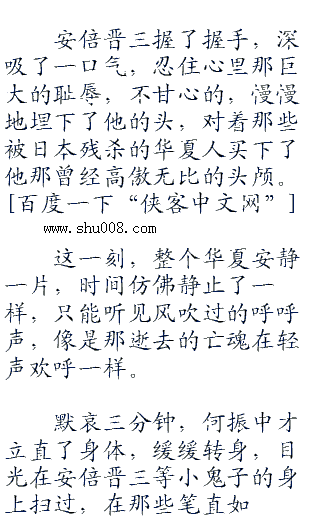 安倍晋三握了握手，深
吸了一口气，忍住心里那巨
大的耻辱，不甘心的，慢慢
地埋下了他的头，对着那些
被日本残杀的华夏人买下了
他那曾经高傲无比的头颅。
[百度一下“侠客中文网”]
www.shu008.com
这一刻，整个华夏安静
一片，时间仿佛静止了一
样，只能听见风吹过的呼呼
声，像是那逝去的亡魂在轻
声欢呼一样。
默哀三分钟，何振中才
立直了身体，缓缓转身，目
光在安倍晋三等小鬼子的身
上扫过，在那些笔直如